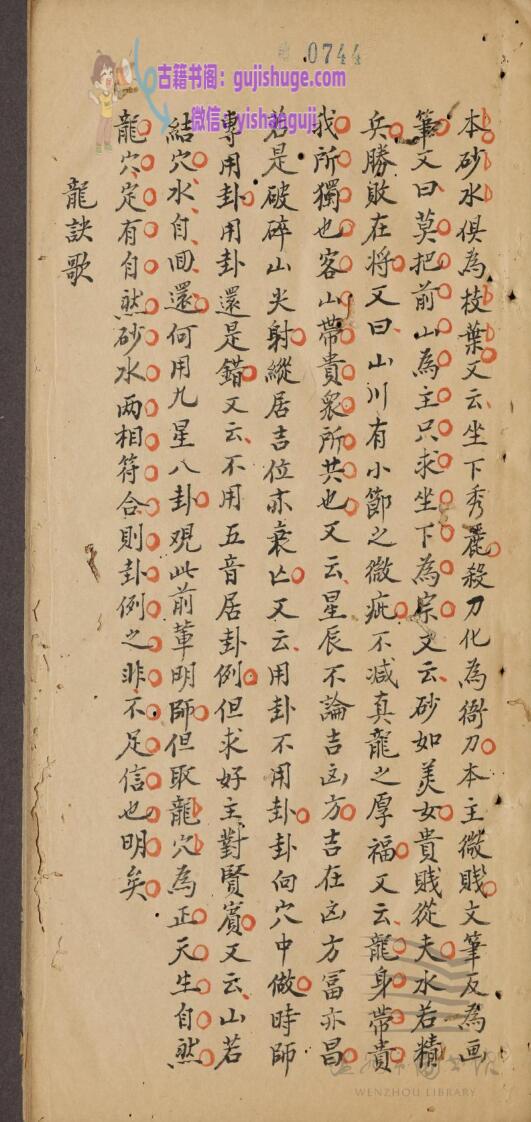 0744
古籍书阁：gujishuge.com
微信：yishanguji
本砂水俱為枝葉又云坐下秀麗殺刀化為衙刀本主微賤文筆反為画
筆又曰莫把前山為主只求坐下為宗又云砂如美女貴賤從夫水若精
兵勝敗在将又曰山川有小節之微疵不减真龍之厚福又云龍身帶貴
我所獨也客山帶貴衆所共也又云星辰不論吉凶方吉在凶方冨亦昌
若是破碎山尖射縱居吉位亦衰亡又云用卦不用卦卦向穴中做時師
專用卦用卦還是錯又云不用五音居卦例但求好主對賢賓又云山若
結穴水自回還何用九星八卦观此前軰明師但取龍穴為正天生自然
龍穴定有自然砂水两相符合則卦例之非不足信也明矣
龍訣歌
温州市图书馆
WENZHOU LIBRARY